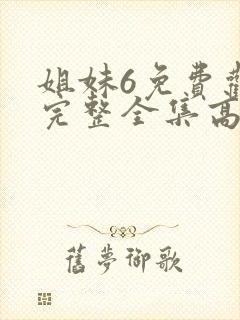 姐妹6免費
完整全集高
舊夢御歌